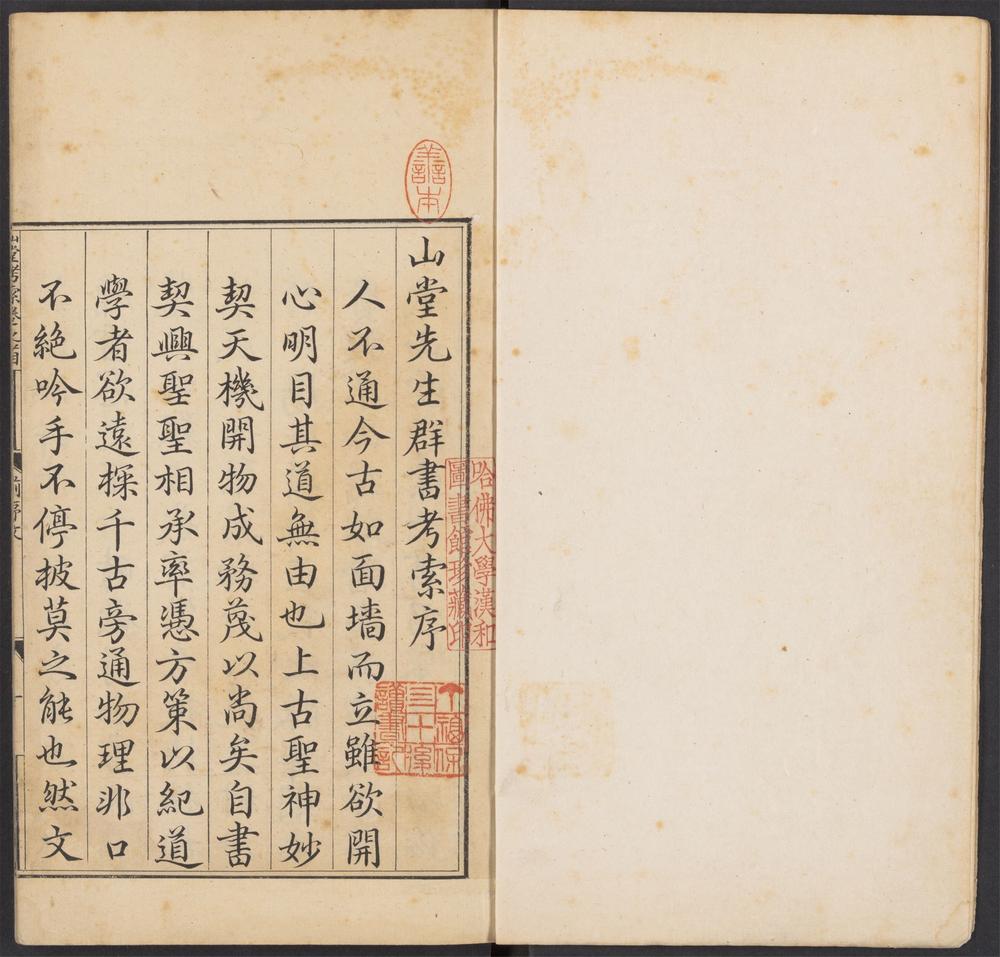 善本
山堂先生群書考索序
人不通今古如面墻而立雖欲開
心明目其道無由也上古聖神妙
契天機開物成務蔑以尚矣自書
契興聖聖相承率憑方策以紀道
學者欲遠探千古旁通物理非口
不絶吟手不停披莫之能也然文
山堂考索卷之首
前序文
哈佛大學漢和
圖書館珍藏印